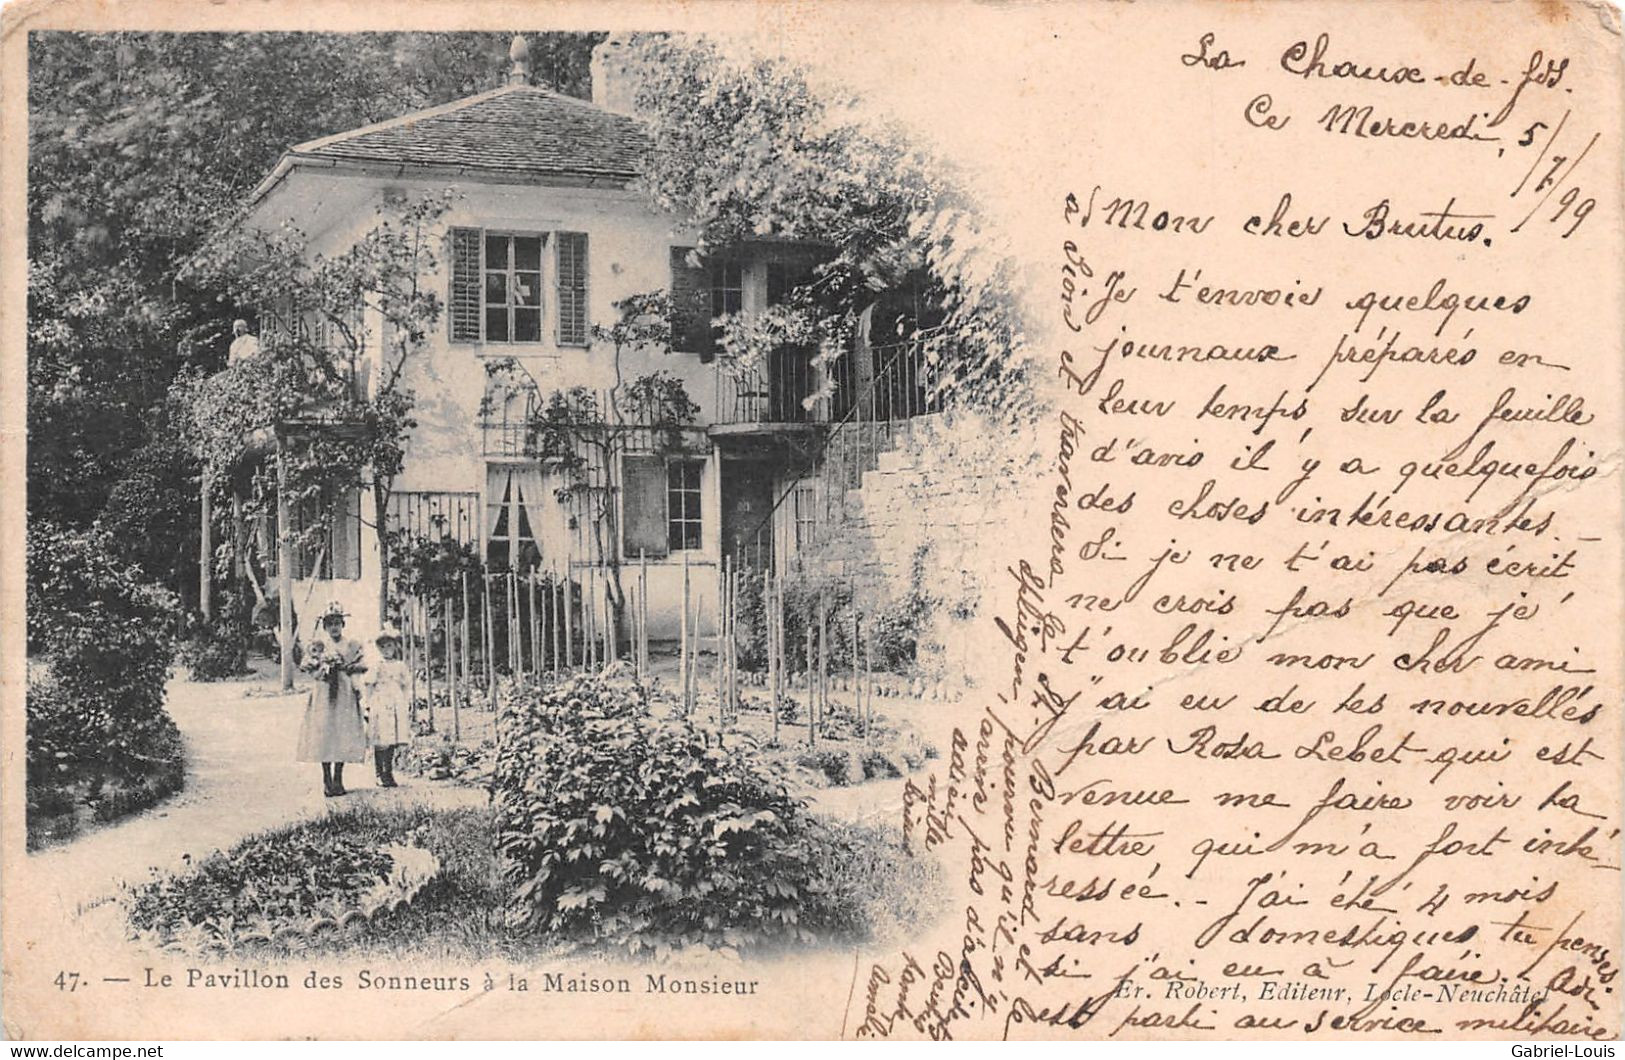 La Chaux-de-fds.
Ce Mercredi, 5/7/99
Mon cher Brutus.
Je t'envoie quelques
journaux préparés en
leur temps, sur la feuille
d'avis il y a quelquefois
des choses intéressantes. -
Si je ne t'ai pas écrit
ne crois pas que je
t'oublie mon cher ami
j'ai eu de tes nouvelles
par Rosa Lebet qui est
venue me faire voir ta
lettre, qui m'a fort inté-
ressée. - J'ai été 4 mois
sans domestiques, tu penses
si j'ai eu à faire. -
est parti au service militaire
à Sion et traversera le St. Bernard et le
Splügen, pourvu qu'il n'y
arrive pas d'accident
adieu
mille
tante
47. — Le Pavillon des Sonneurs à la Maison Monsieur
Er. Robert, Editeur, Locle-Neuchâtel
Gabriel-Louis